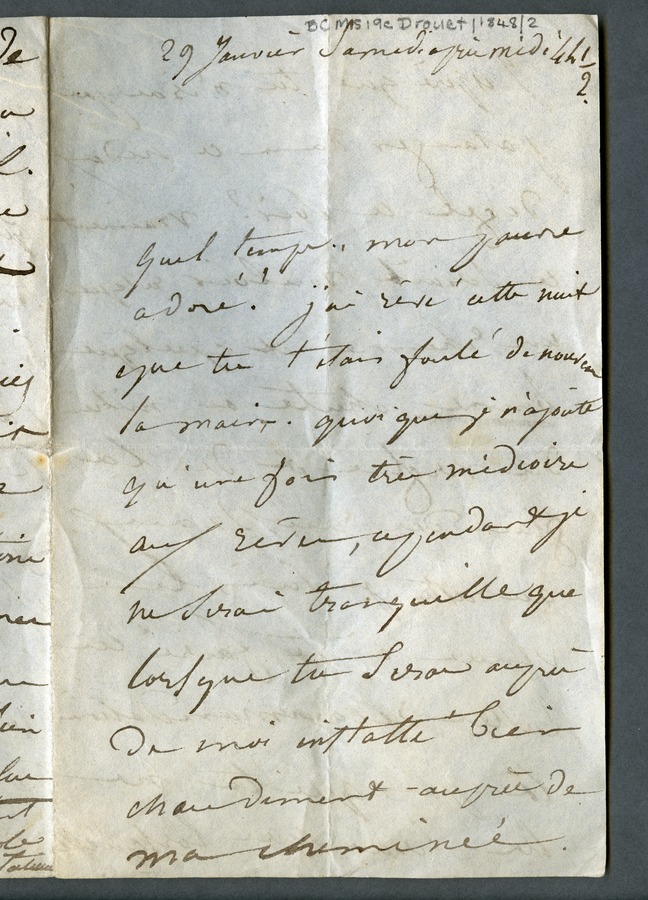 BC MS 19c Drouet/1848/2
29 Janvier Samedi après midi 4h 1/2
quel temps.. mon pauvre
adoré! j'ai rêvé cette nuit
que tu t'étais foulé de nouveau
la main. quoique je n'ajoute
qu'une foi très médiocre
aux rêves, cependant je
ne serai tranquille que
lorsque tu seras auprès
de moi installé bien
chaudement auprès de
ma cheminée.